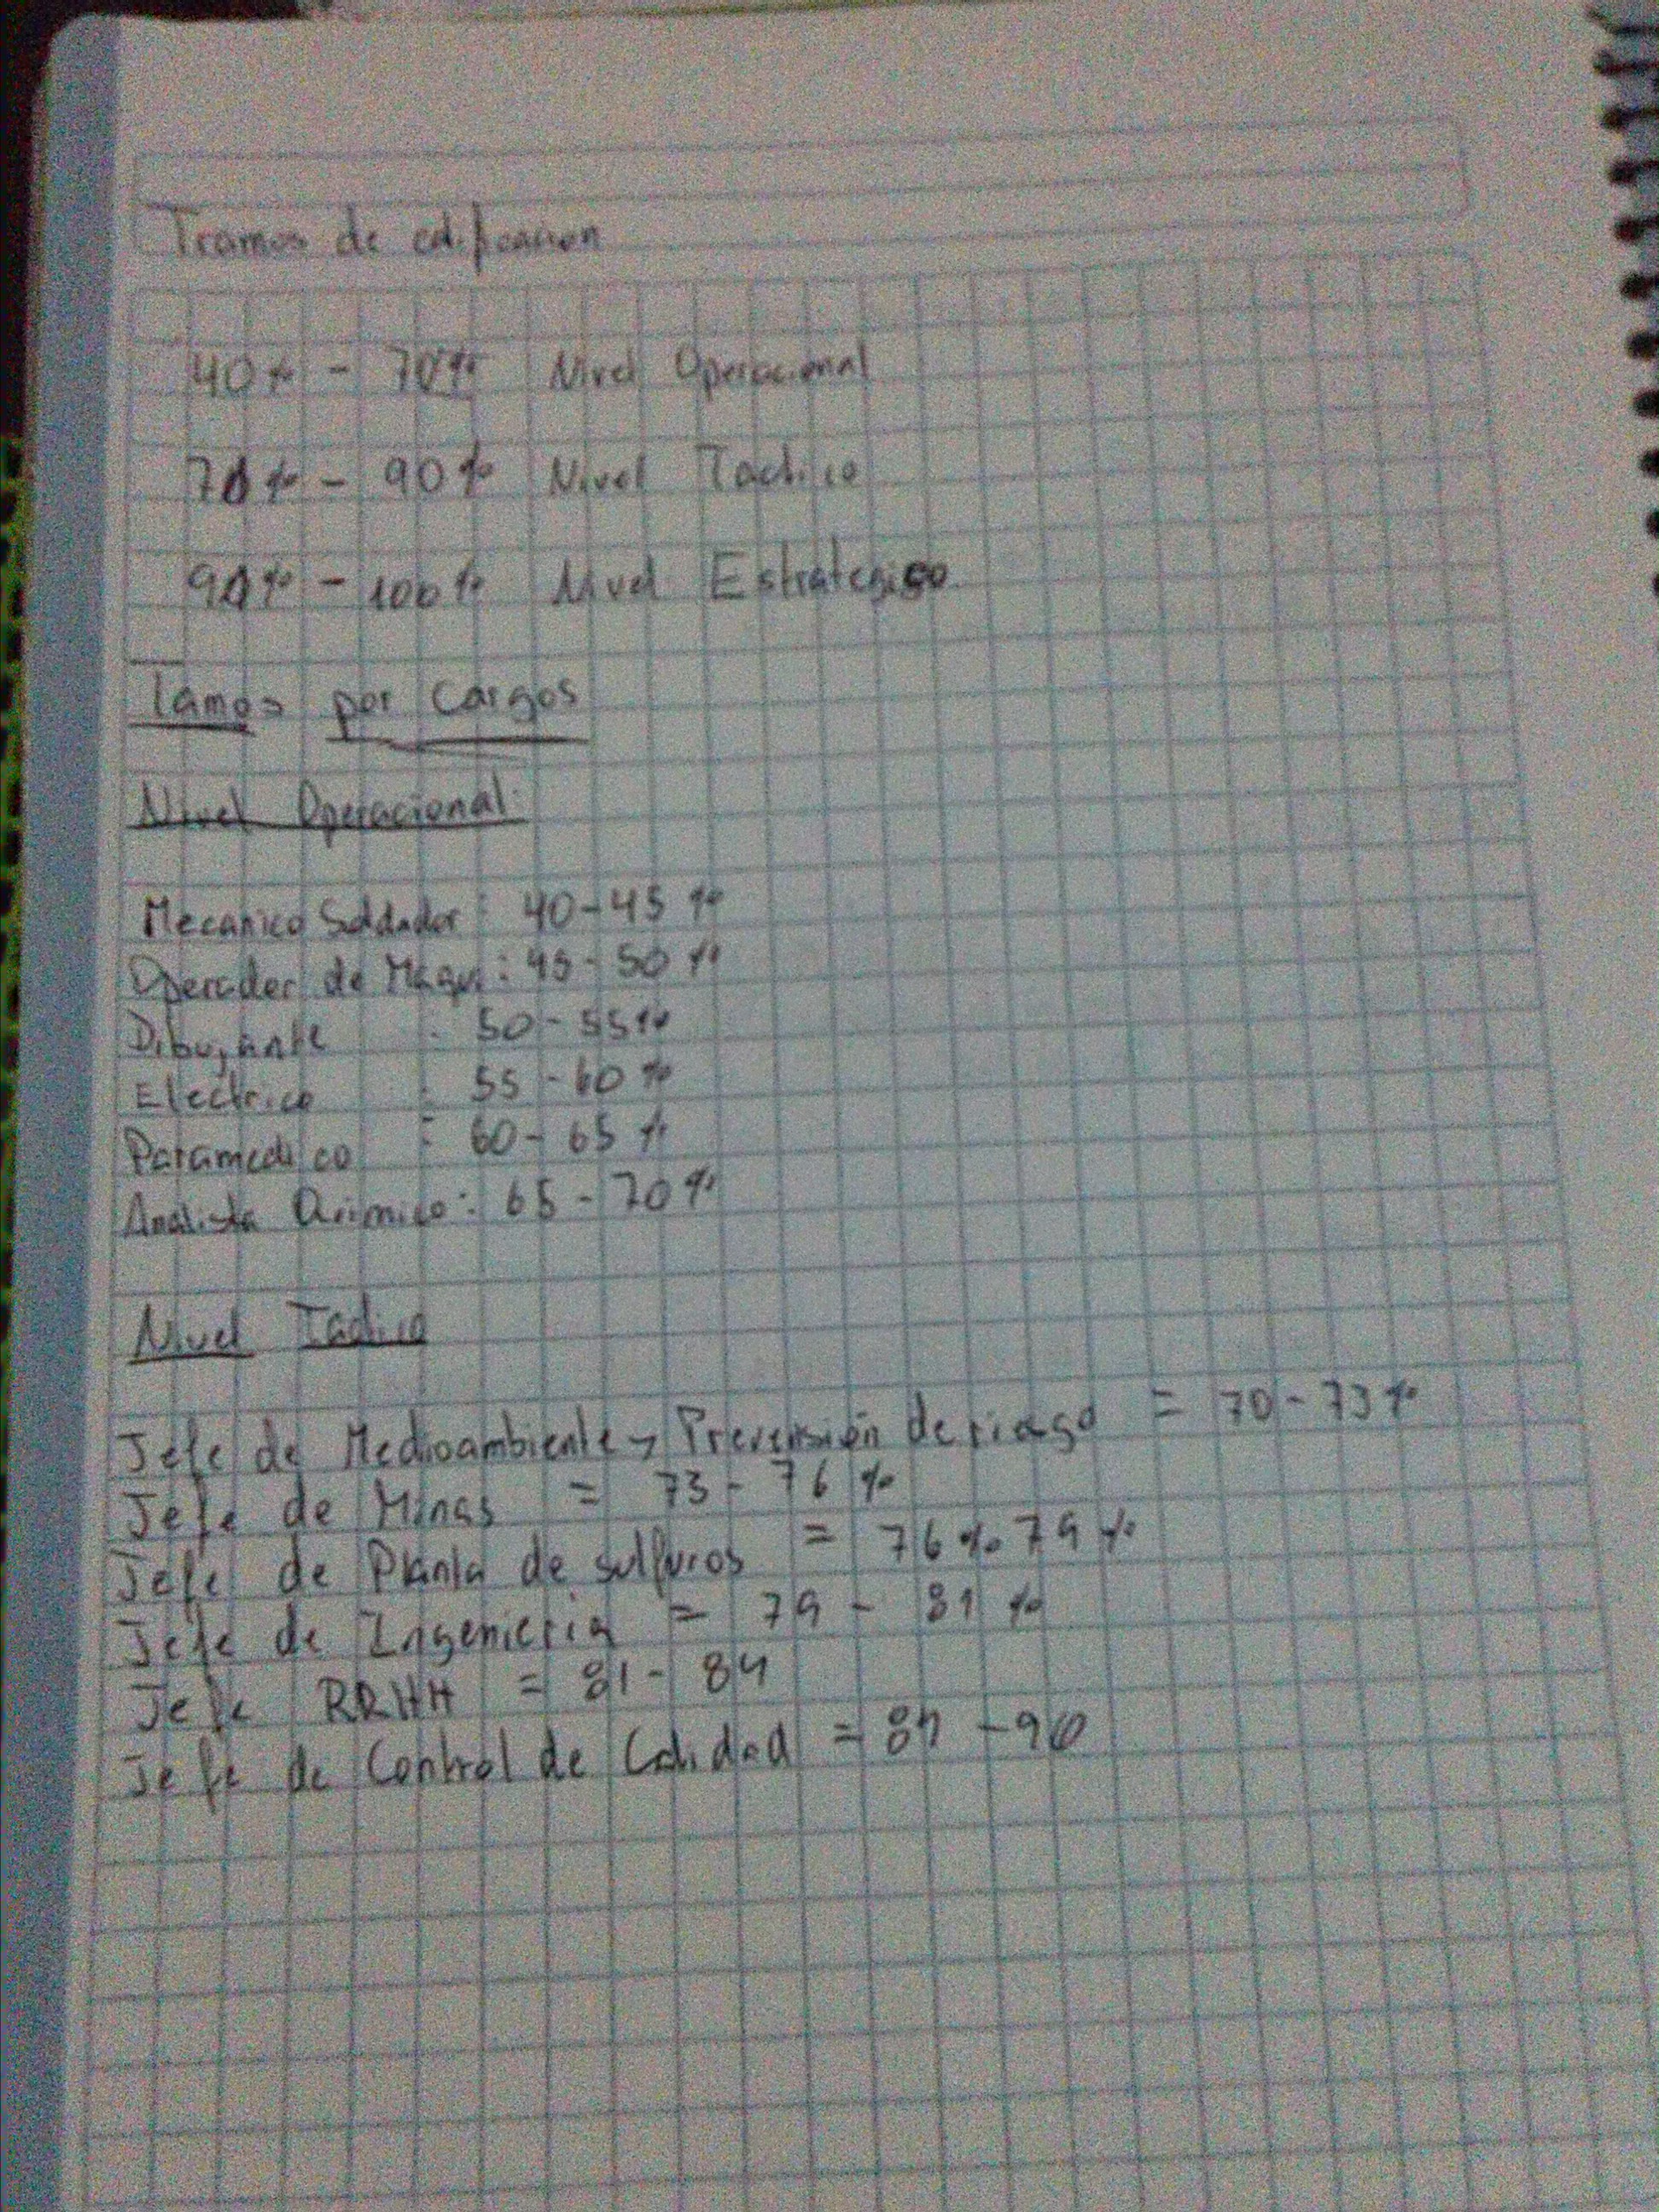 Tramos de edificacion
40% - 70% Nivel Operacional
70% - 90% Nivel Tactico
90% - 100% Nivel Estrategico
Tamos por Cargos
Nivel Operacional:
Mecanico Soldador : 40-45 %
Operador de Maqui : 45-50 %
Dibujante : 50-55%
Electrico : 55-60 %
Paramedico : 60-65 %
Analista Quimico : 65-70%
Nivel Tactico
Jefe de Medioambiente y Prevensión de riesgo = 70-73%
Jefe de Minas = 73-76 %
Jefe de Planta de sulfuros = 76% 79%
Jefe de Ingenieria = 79 - 81 %
Jefe RRHH = 81- 84
Jefe de Control de Calidad = 87 -90